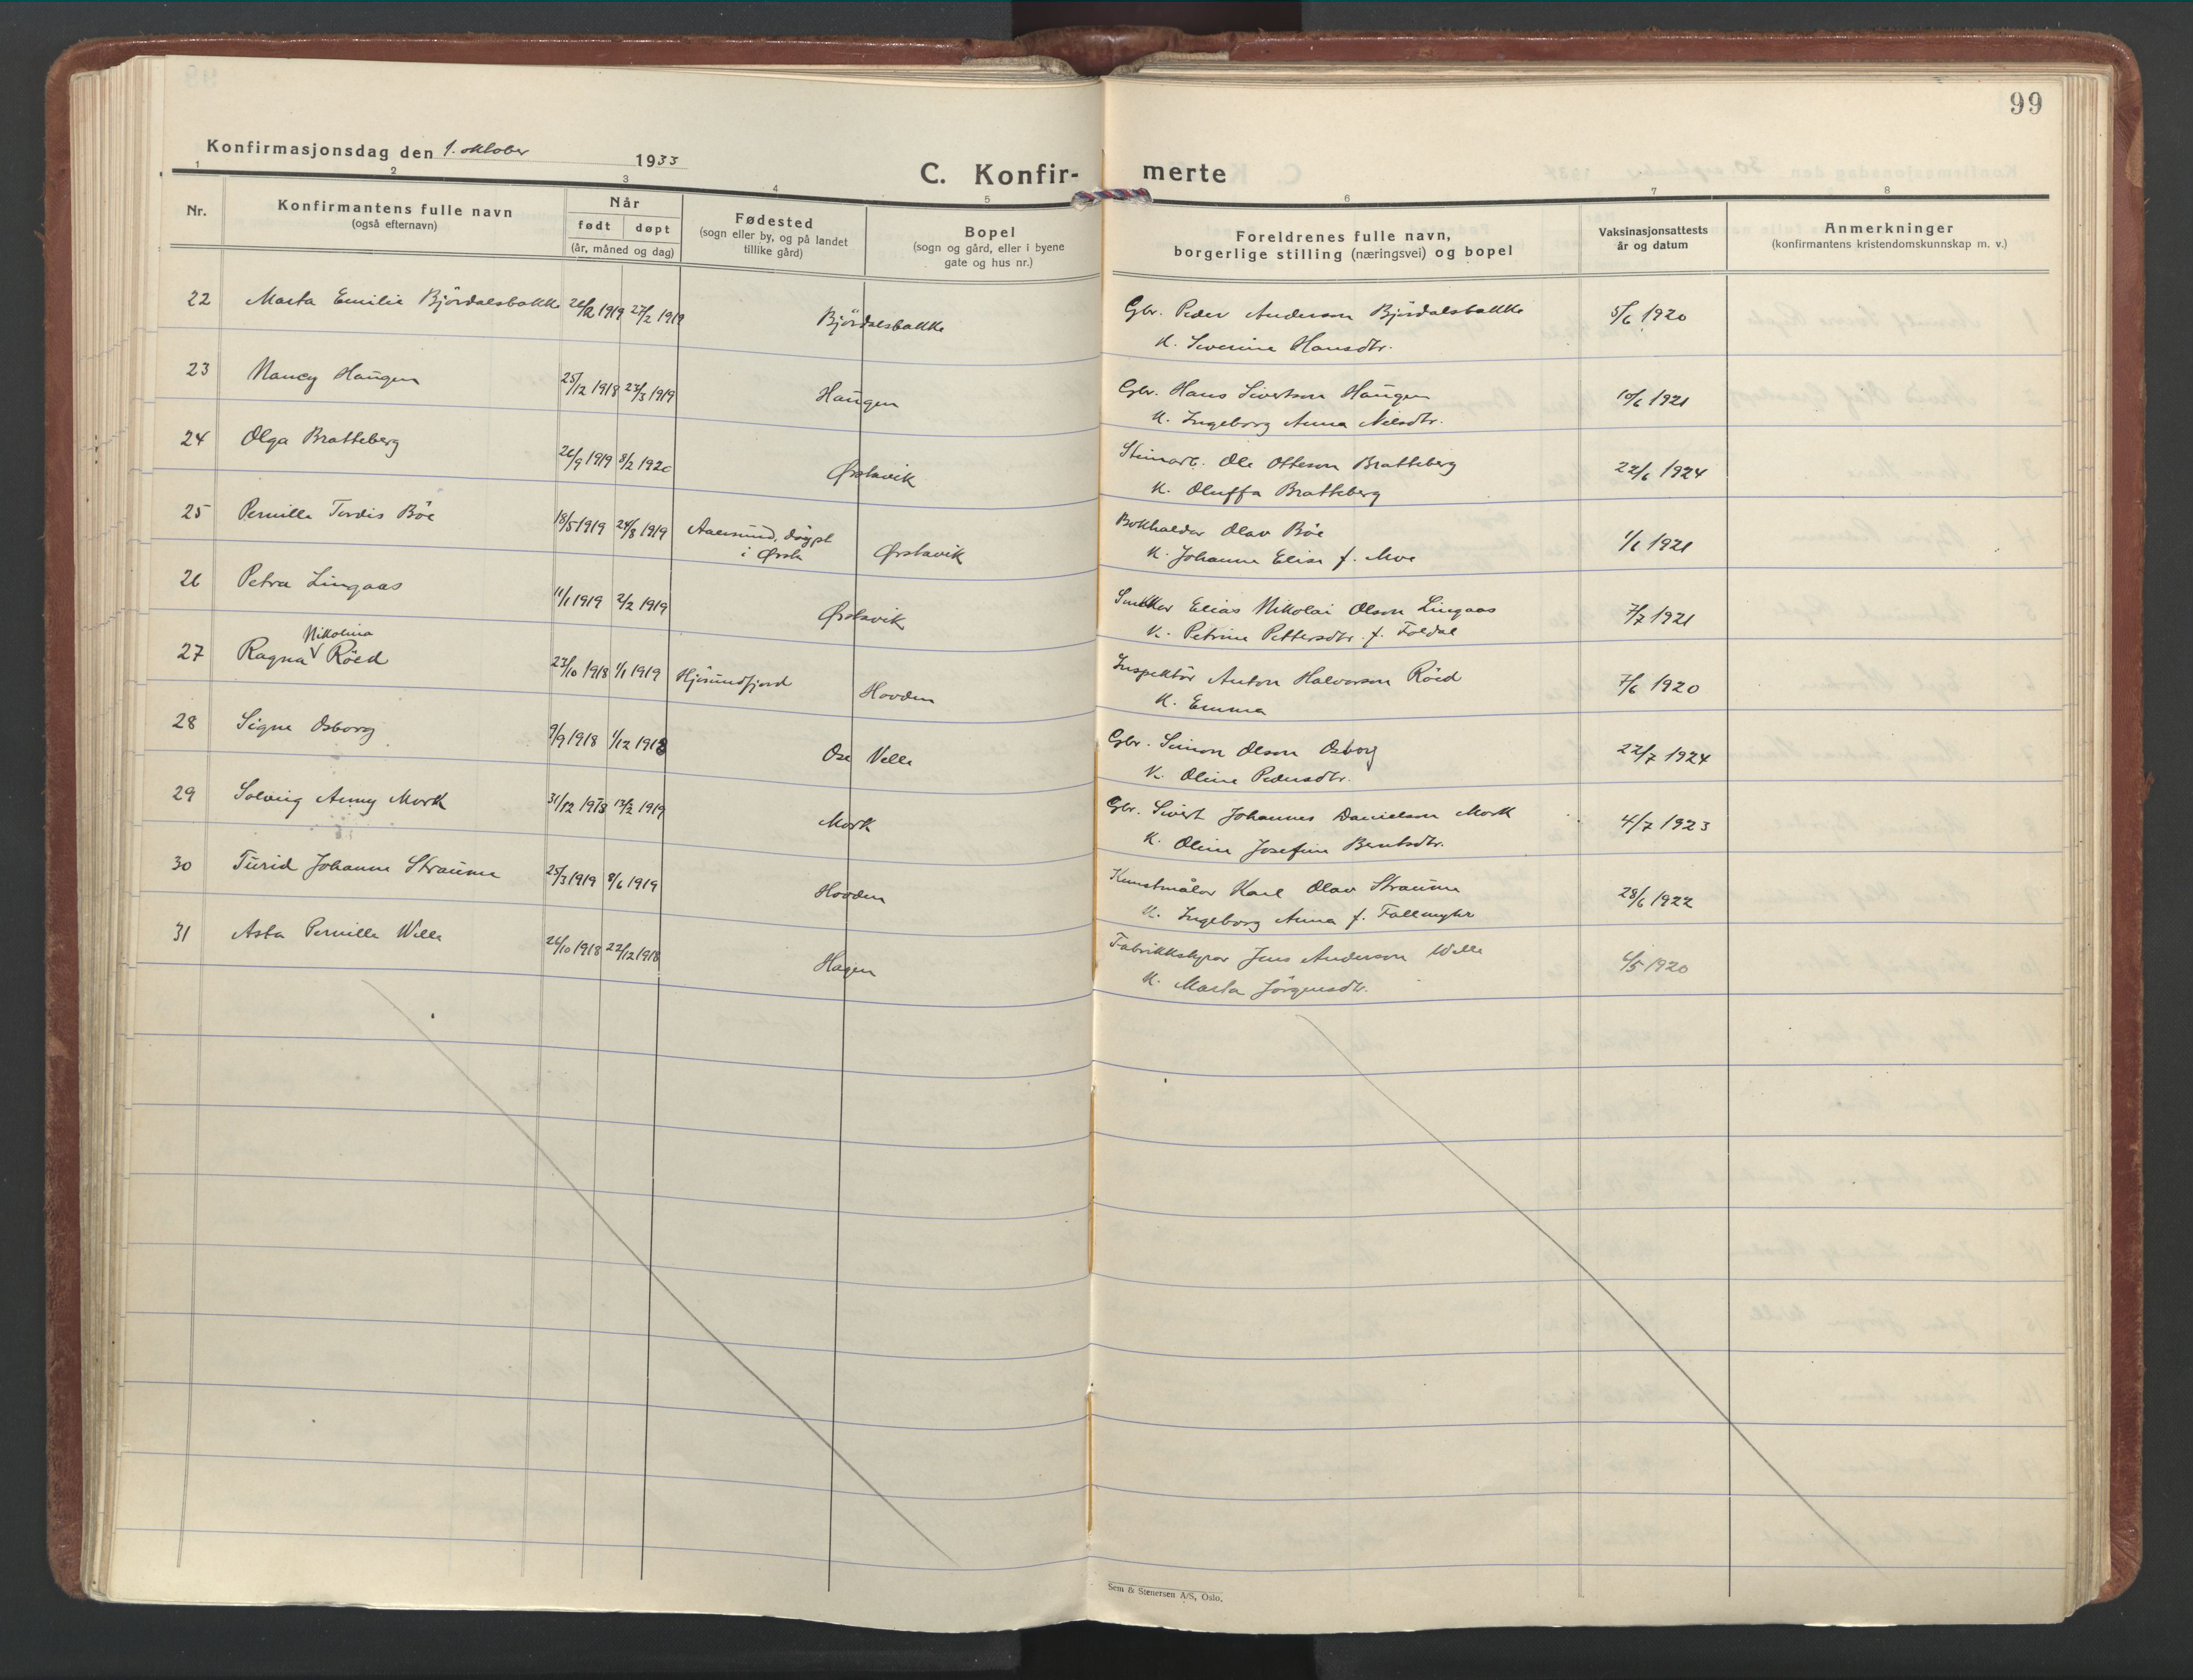 99
Konfirmasjonsdag den 1. oktober 1933
C. Konfir- merte
1 2 3 4 5 6 7 8
Nr.
Konfirmantens fulle navn
(også efternavn)
Når
født døpt
(år, måned og dag)
Fødested
(sogn eller by, og på landet
tillike gård)
Bopel
(sogn og gård, eller i byene
gate og hus nr.)
Foreldrenes fulle navn,
borgerlige stilling (næringsvei) og bopel
Vaksinasjonsattests
år og datum
Anmerkninger
(konfirmantens kristendomskunnskap m. v.)
22 Marta Emilie Björdalsbakke 1919 27/2 1919 Björdalsbakke Gbr. Peder Anderson Björdalsbakke 5/6 1920
K. Severine Hansdtr.
23 Nancy Haugen 25/12 1918 23/3 1919 Haugen Gbr. Hans Sivertson Haugen 10/6 1921
K. Ingeborg Anna Nilsdtr.
24 Olga Bratteberg 26/9 1919 8/2 1920 Ørstavik Steinarb. Ole Otteson Bratteberg 22/6 1924
K. Oluffa Bratteberg
25 Pernille Tordis Böe 18/5 1919 24/8 1919 Aalesund, döypt Ørstavik Bokhalder Olav Böe 1/6 1921
i Ørsta K. Johanne Elise f. Moe
26 Petra Lingaas 11/1 1919 2/2 1919 Ørstavik Snekker Elias Nikolai Olson Lingaas 7/7 1921
K. Petrine Pettersdtr. f. Foldal
Nikolina
27 Ragna Röed 23/10 1918 1/1 1919 Hjörundfjord Hovden Inspektör Anton Halvorson Röed 7/6 1920
K. Emma
28 Signe Osborg 9/9 1918 1/12 1918 Ose Velle Gbr. Simon Olson Osborg 22/7 1924
K. Oline Pedersdtr.
29 Solveig Anny Mork 31/12 1918 1919 Mork Gbr. Sivert Johannes Danielson Mork 4/7 1923
K. Oline Josefine Berntsdtr.
30 Turid Johanne Straume 25/3 1919 8/6 1919 Hovden Kunstmåler Karl Olav Straume 28/6 1922
K. Ingeborg Anna f. Fallmyhr
31 Asta Pernille Welle 26/10 1918 22/12 1918 Hagen Fabrikkstyrar Jens Anderson Welle 6/5 1920
K. Marta Jörgensdtr.
Sem & Stenersen A/S, Oslo.